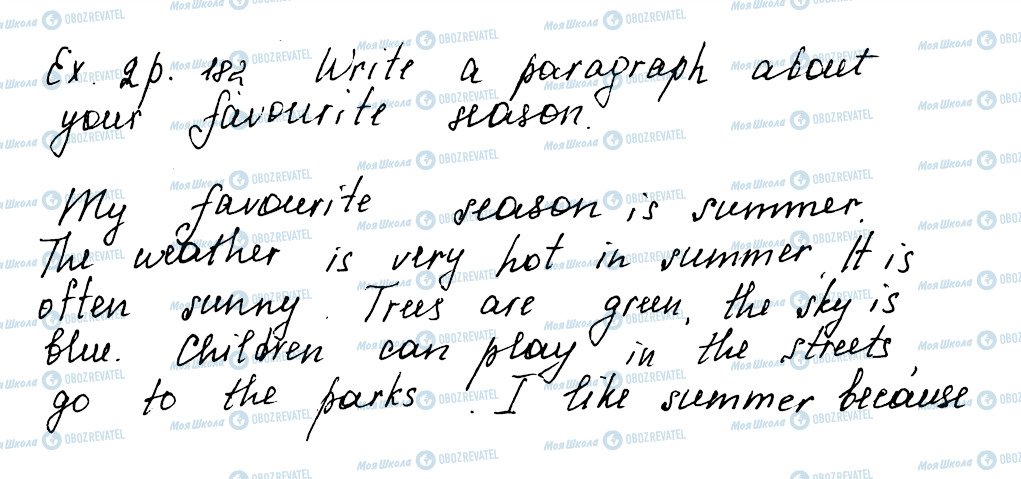 Ex. 2 p. 182 Write a paragraph about
your favourite season.
My favourite season is summer.
The weather is very hot in summer. It is
often sunny. Trees are green, the sky is
blue. Children can play in the streets
go to the parks. I like summer because